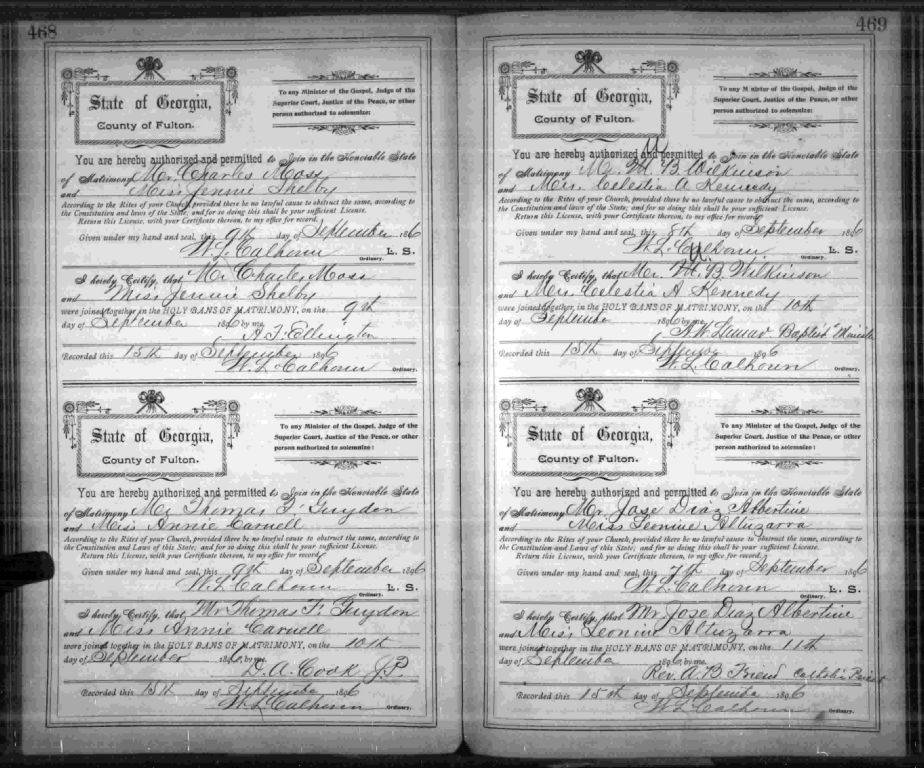 468
State of Georgia,
County of Fulton.
To any Minister of the Gospel, Judge of the
Superior Court, Justice of the Peace, or other
person authorized to solemnize:
You are hereby authorized and permitted to Join in the Honorable State
of Matrimony Mr. Charles Moss
and Miss Jennie Shelby
According to the Rites of your Church, provided there be no lawful cause to obstruct the same, according to
the Constitution and laws of the State, and for so doing this shall be your sufficient License.
Return this License, with your Certificate thereon, to my office for record.
Given under my hand and seal, this 9th day of September 1896
W. L. Calhoun L. S.
Ordinary.
I hereby Certify, that Mr. Charles Moss
and Miss Jennie Shelby
were joined together in the HOLY BANS OF MATRIMONY, on the 9th
day of September 1896 by me.
A. T. Ellington
Recorded this 15th day of September 1896
W. L. Calhoun
Ordinary.
State of Georgia,
County of Fulton.
To any Minister of the Gospel, Judge of the
Superior Court, Justice of the Peace, or other
person authorized to solemnize:
You are hereby authorized and permitted to Join in the Honorable State
of Matrimony Mr Thomas F. Guydon
and Miss Annie Carnell
According to the Rites of your Church, provided there be no lawful cause to obstruct the same, according to
the Constitution and Laws of this State; and for so doing this shall be your sufficient License.
Return this License, with your Certificate thereon, to my office for record.
Given under my hand and seal, this 9th day of September 1896
W. L. Calhoun L. S.
Ordinary.
I hereby Certify, that Mr Thomas F. Guydon
and Miss Annie Carnell
were joined together in the HOLY BANS OF MATRIMONY, on the 10th
day of September 1896, by me.
D. A. Cook J.P.
Recorded this 15th day of September 1896
W. L. Calhoun
Ordinary.
469
State of Georgia,
County of Fulton.
To any Minister of the Gospel, Judge of the
Superior Court, Justice of the Peace, or other
person authorized to solemnize:
You are hereby authorized and permitted to Join in the Honorable State
of Matrimony Mr. M. B. Wilkinson
and Mrs. Celestia A Kennedy
According to the Rites of your Church, provided there be no lawful cause to obstruct the same, according to
the Constitution and laws of this State; and for so doing this shall be your sufficient License.
Return this License, with your Certificate thereon, to my office for record.
Given under my hand and seal, this 8th day of September 1896
W. L. Calhoun. L. S.
Ordinary.
I hereby Certify, that Mr. M. B. Wilkinson
and Mrs Celestia A Kennedy
were joined together, in the HOLY BANS OF MATRIMONY, on the 10th
day of September 1896 by me.
Baptist Minister
Recorded this 15th day of September 1896
W. L. Calhoun
Ordinary.
State of Georgia,
County of Fulton.
To any Minister of the Gospel, Judge of the
Superior Court, Justice of the Peace, or other
person authorized to solemnize:
You are hereby authorized and permitted to Join in the Honorable State
of Matrimony Mr. Jose Diaz Albertine
and Miss Leonine Altuzarra
According to the Rites of your Church, provided there be no lawful cause to obstruct the same, according to
the Constitution and Laws of this State; and for so doing this shall be your sufficient License.
Return this License, with your Certificate thereon, to my office for record.
Given under my hand and seal, this 7th day of September 1896
W. L. Calhoun L. S.
Ordinary.
I hereby Certify, that Mr Jose Diaz Albertine
and Miss Leonine Altuzarra
were joined together in the HOLY BANS OF MATRIMONY, on the 11th
day of September 1896, by me.
Rev. A. B Friend Catholic Priest
Recorded this 15th day of September 1896
W. L. Calhoun
Ordinary.